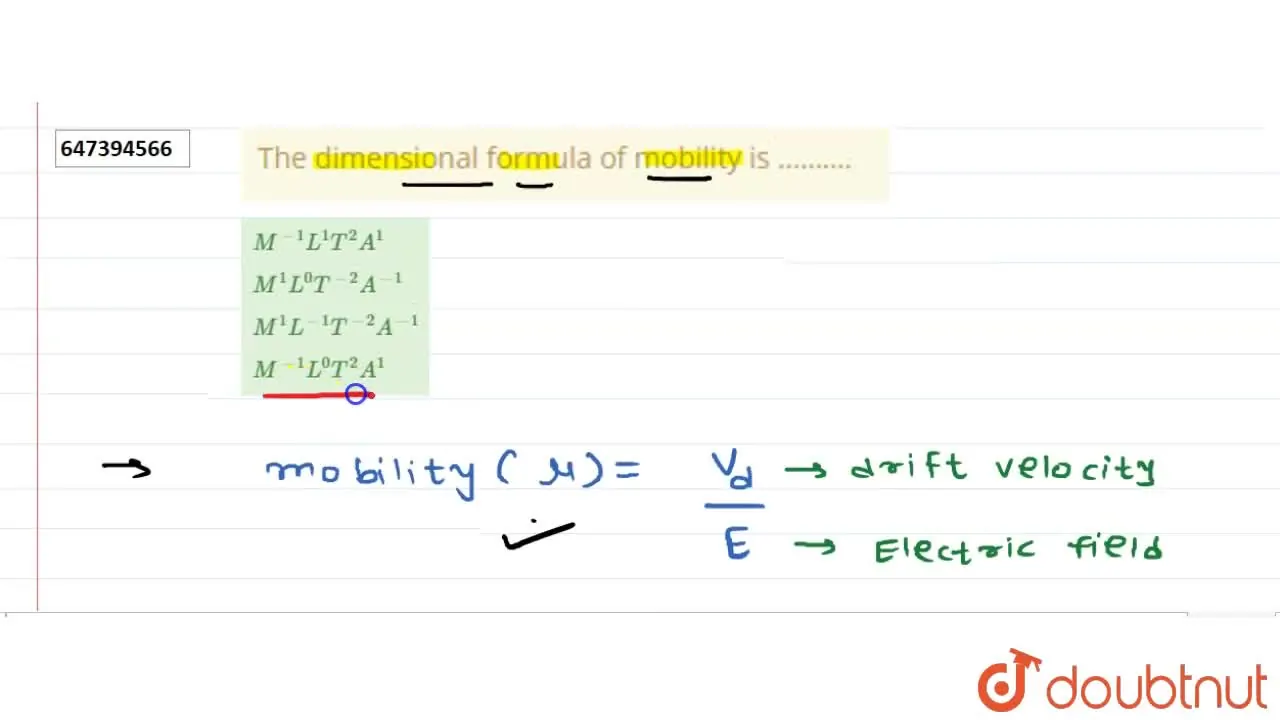 647394566
The dimensional formula of mobility is ..........
M⁻¹L¹T²A¹
M¹L⁰T⁻²A⁻¹
M¹L⁻¹T⁻²A⁻¹
M⁻¹L⁰T²A¹
→ mobility (μ) = Vd → drift velocity
E → Electric field
doubtnut